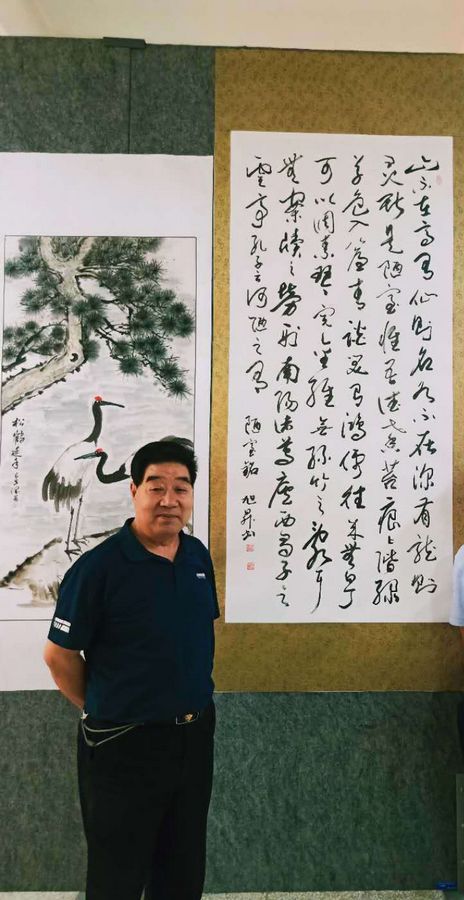 山不在高有仙则名水不在深有龍則
灵斯是陋室惟吾德馨苔痕上階绿
草色入簾青談笑有鴻儒往来無白丁
可以调素琴阅金经無絲竹之乱耳
無案牍之勞形南陽诸葛廬西蜀子
雲亭孔子云何陋之有
陋室銘 旭昇书
松鶴延年